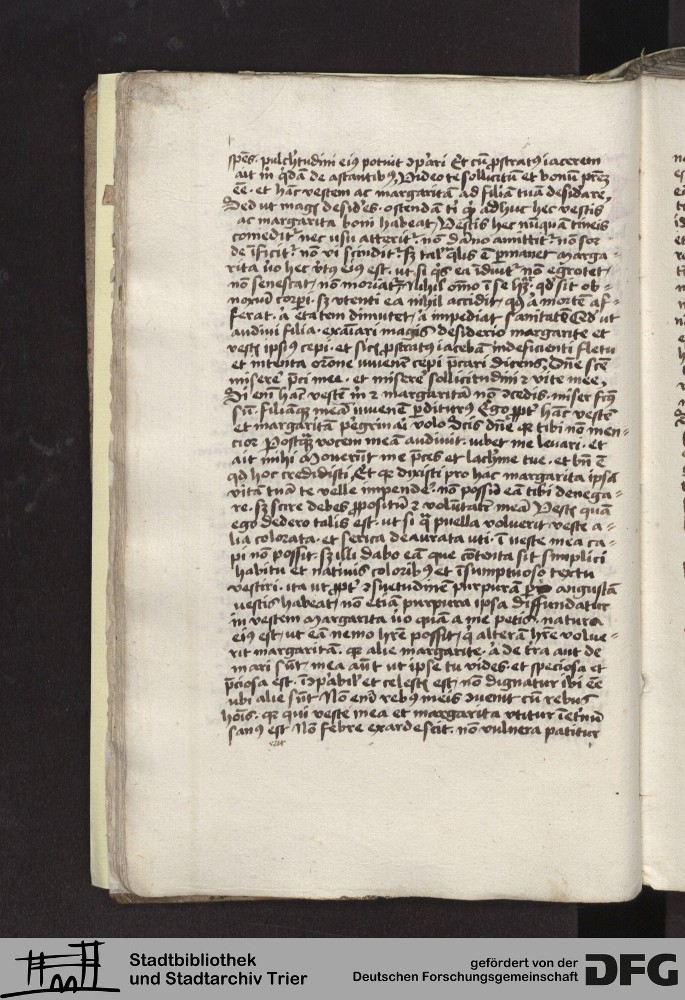 spēs · pulch'tudini eiꝯ potuit ꝯp̄ari Et cū p̱stratꝯ iacerem
ait m̄ q̄dā de astantibꝯ, Video te sollicitū et bonū pr̄ez
eē · et hāc vestem ac margaritā ad filiā tuā desid̓are,
Sed ut magꝭ desid̓es · ostendā ti q̇ adhuc hec vestis
ac margarita boni habeat, Vestis hec nūquā tineis
comedit᷑ nec usu atterit᷑ · nō dāno amittit᷑ nō sor
de īficit᷑ nō vi scindit᷑ sꝫ tal' q̄lis ē p̱manet Marga-
rita ūo hec v̓tꝯ eiꝯ est · ut si q̇s ea īduit᷑ nō egrotet,
nō senescat, nō moriat᷑, Nihil om̄o ī se hꝫ · qd̓ sit ob-
noxiū corp̱i · sꝫ vtenti ea nihil accidit, qd̓ a mortē af-
ferat · a̓ etatem dimutet, a̓ impediat sanitatē Sed ut
audivi filia · exāiari magis desiderio margarite et
vestꝭ ipsiꝯ cepi · et sicꝭ p̱stratꝯ iacebā indeficienti fletu
et intenta or̄one iuvenē cepi p̄cari dicens, Dn̄e scē
miserē p̄ci mee · et miserē sollicitudini ⁊ vite mee,
Si eni hāc vestē m̄ ⁊ margaritā nō ꝯcedis · miser
sū · filiāqꝫ meā iuvenē p̱diturꝯ Ego p̱pt̓ hāc vestē
et margaritā p̱egrinari volo Scis dn̄e qꝛ tibi nō men-
cior Postqꝫ vocem meā audivit · iubet me levari · et
ait mihi Moverūt me p̄ces et lach'me tue · et bn̄ ē
qd̓ hoc credidisti, Et qꝛ dixisti pro hac margarita ipsā
vitā tuā te velle impendē · nō possū eā tibi denega-
re · sꝫ scire debes p̱positū ⁊ volūtatē meā Vestꝭ quā
ego dedero talis est · ut si q̄ puella voluerit veste a-
lia colorata · et serica deaurata uti · ī veste mea ca-
pi nō possit · sꝫ illi dabo eā que cōtenta sit simplici
habitu et nativis coloribꝯ et īsumptuoso textu
vestiri · ita ut p̱pt̓ ꝯsuetudinē purpurā angustā
vestis habeat, nō etiā purpura ipsa diffundatur
in vestem Margarita ūo quā a me petis · natura
eiꝯ est, ut eā nemo hr̄e possit, q̇ alterā hr̄e volue-
rit margaritā · qꝛ alie margarite · a̓ de t̓ra aut de
mari sūt, mea aūt ut ipse tu vides · et speciosa et
p̄ciosa est · īꝯp̱abil' et celestꝭ est, nō dignatur ibi eē
ubi alie sūt, Nō eni rebꝯ meis ꝯvenit cū rebus
hoīs · qꝛ qui veste mea et margarita vtitur ī et̓nū
sanꝯ est Nō febre exardescit · nō vulnera patitur
Stadtbibliothek
und Stadtarchiv Trier
gefördert von der
Deutschen Forschungsgemeinschaft
DFG